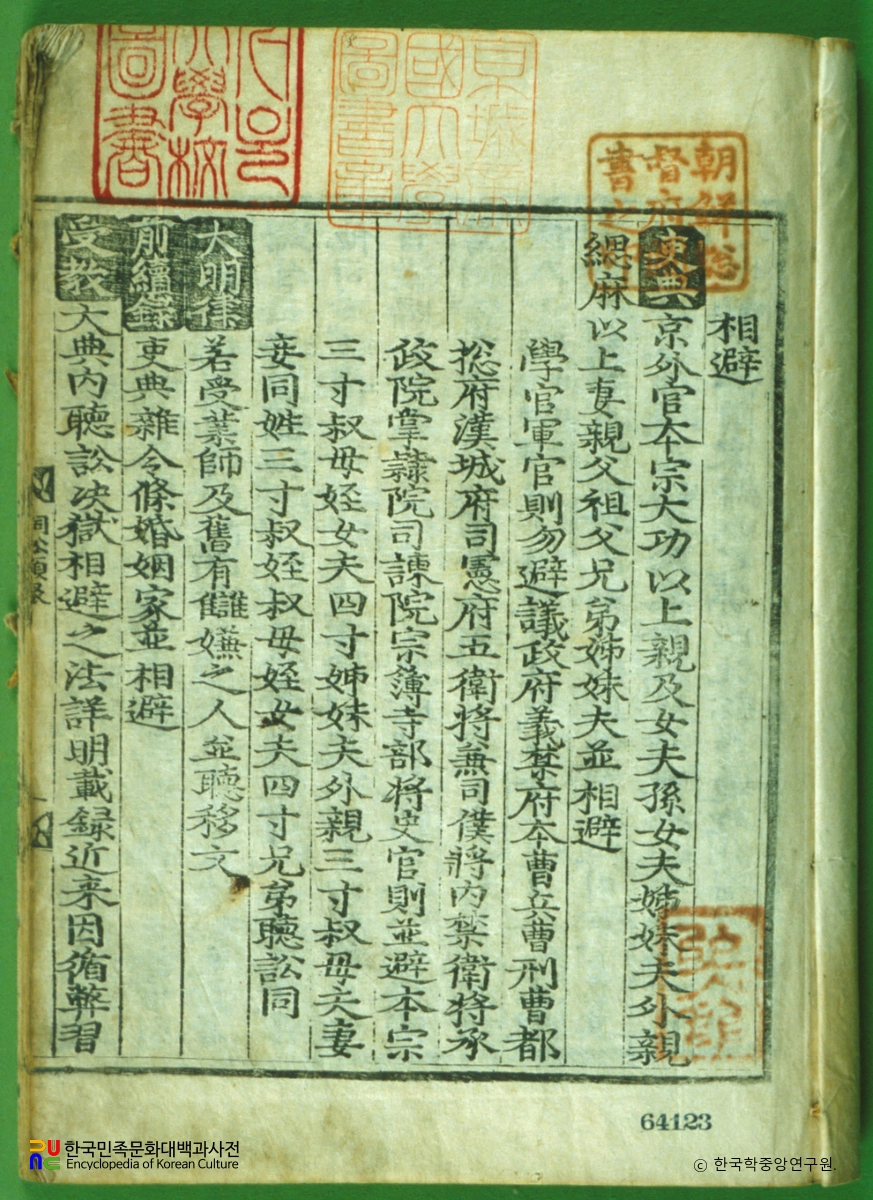 相避
吏典 京外官本宗大功以上親及女夫孫女夫姊妹夫外親
緦麻以上妻親父祖父兄弟姊妹夫並相避
學官軍官則勿避議政府義禁府本曹兵曹刑曹都
摠府漢城府司憲府五衛將兼司僕將內禁衛將承
政院掌隸院司諫院宗簿寺部將史官則並避本宗
三寸叔母姪女夫四寸姊妹夫外親三寸叔母夫妻
妾同姓三寸叔姪叔母姪女夫四寸兄弟聽訟同
大明律 若受業師及舊有讎嫌之人並聽移文
前續錄 吏典雜令條婚姻家並相避
受敎 大典內聽訟决獄相避之法詳明載録近来因循弊習
朝鮮總
督府圖
書之
京城帝
國大學
圖書章
大學校
圖書
64123
한국민족문화대백과사전
Encyclopedia of Korean Culture
ⓒ 한국학중앙연구원.